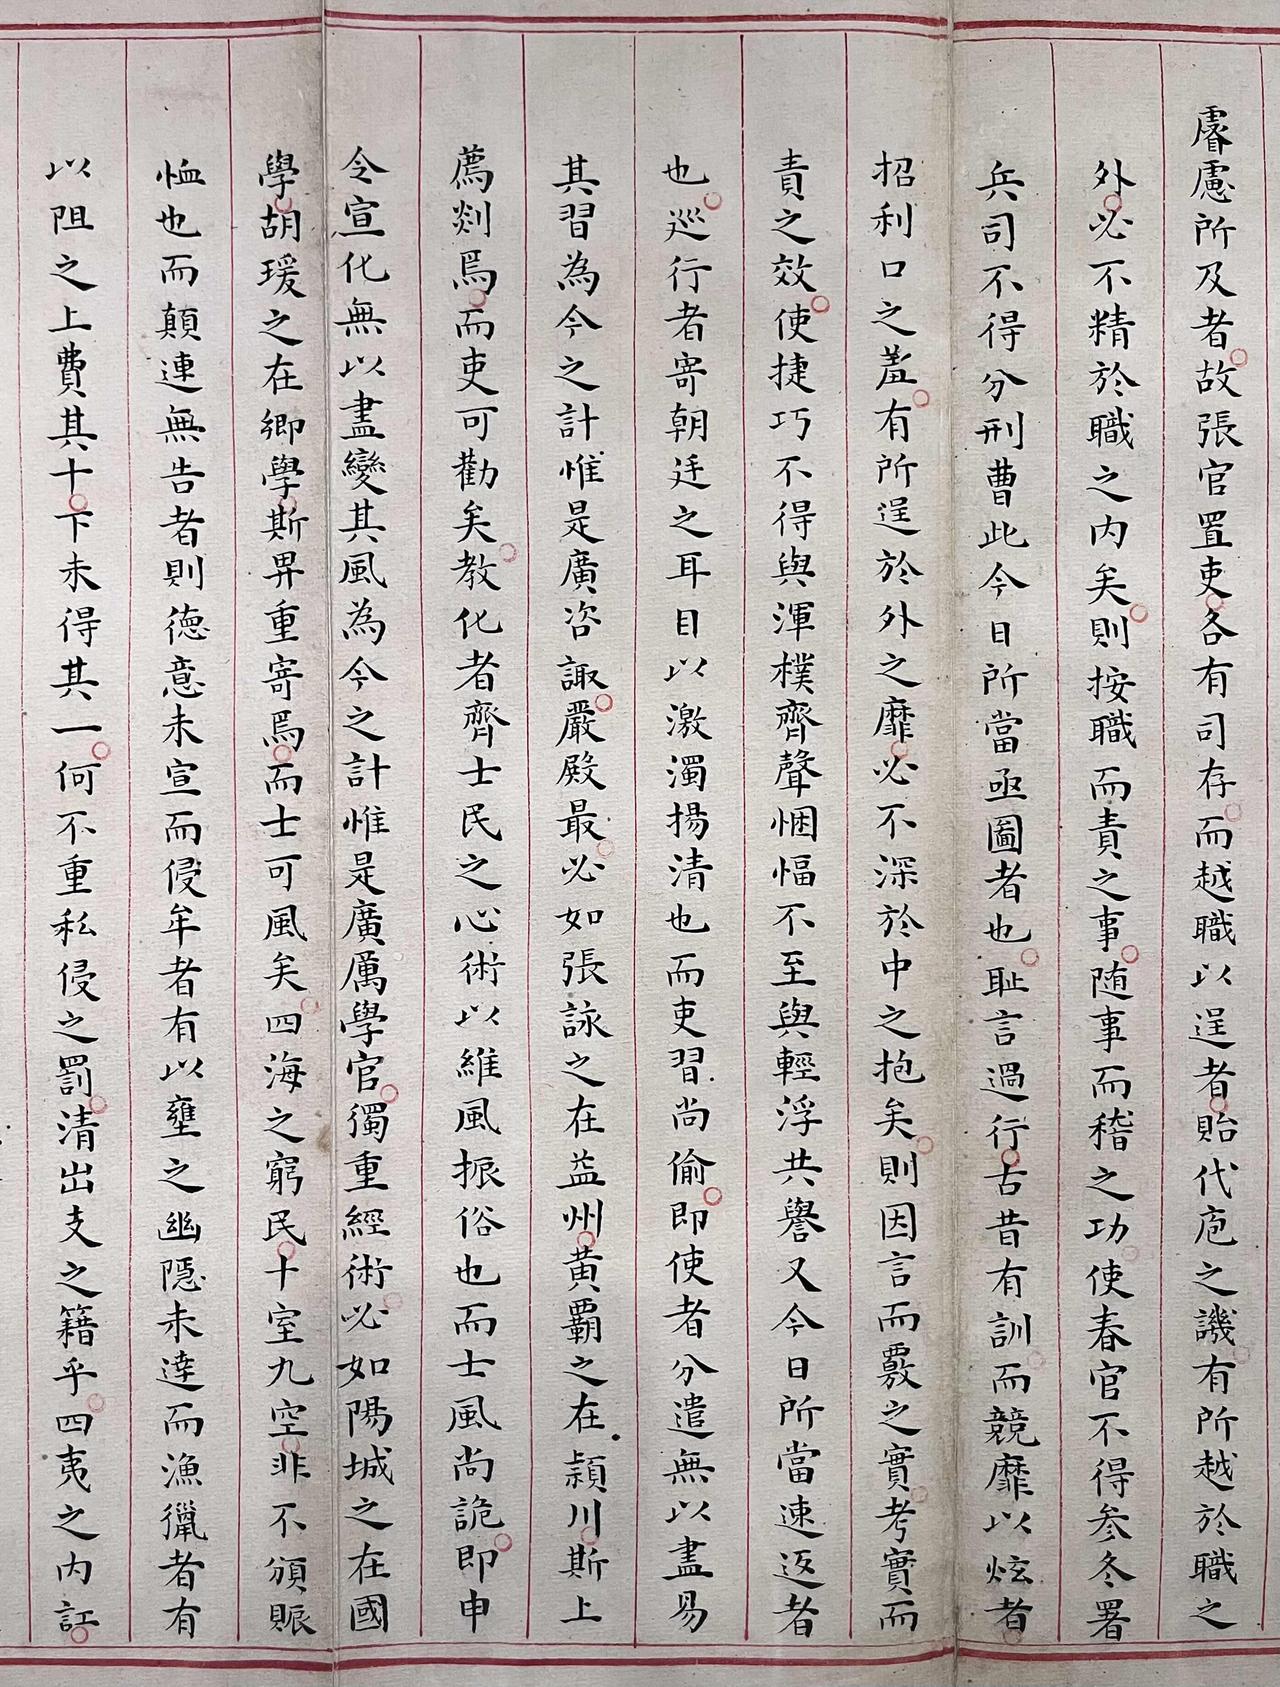 睿慮所及者故張官置吏各有司存而越職以逞者貽代庖之譏有所越於職之
外必不精於職之內矣則按職而責之事随事而稽之功使春官不得参冬署
兵司不得分刑曹此今日所當亟圖者也恥言過行古昔有訓而競靡以炫者
招利口之羞有所逞於外之靡必不深於中之抱矣則因言而覈之實考實而
責之效使捷巧不得與渾樸齊聲悃愊不至與輕浮共譽又今日所當速返者
也巡行者寄朝廷之耳目以激濁揚清也而吏習尚偷即使者分遣無以盡易
其習為今之計惟是廣咨諏嚴殿最必如張詠之在益州黃霸之在潁川斯上
薦剡焉而吏可勸矣教化者齊士民之心術以維風振俗也而士風尚詭即申
令宣化無以盡變其風為今之計惟是廣厲學官獨重經術必如陽城之在國
學胡瑗之在鄉學斯畀重寄焉而士可風矣四海之窮民十室九空非不頒賑
恤也而顛連無告者則德意未宣而侵牟者有以壅之幽隱未達而漁獵者有
以阻之上費其十下未得其一何不重私侵之罰清出支之籍乎四夷之內訌